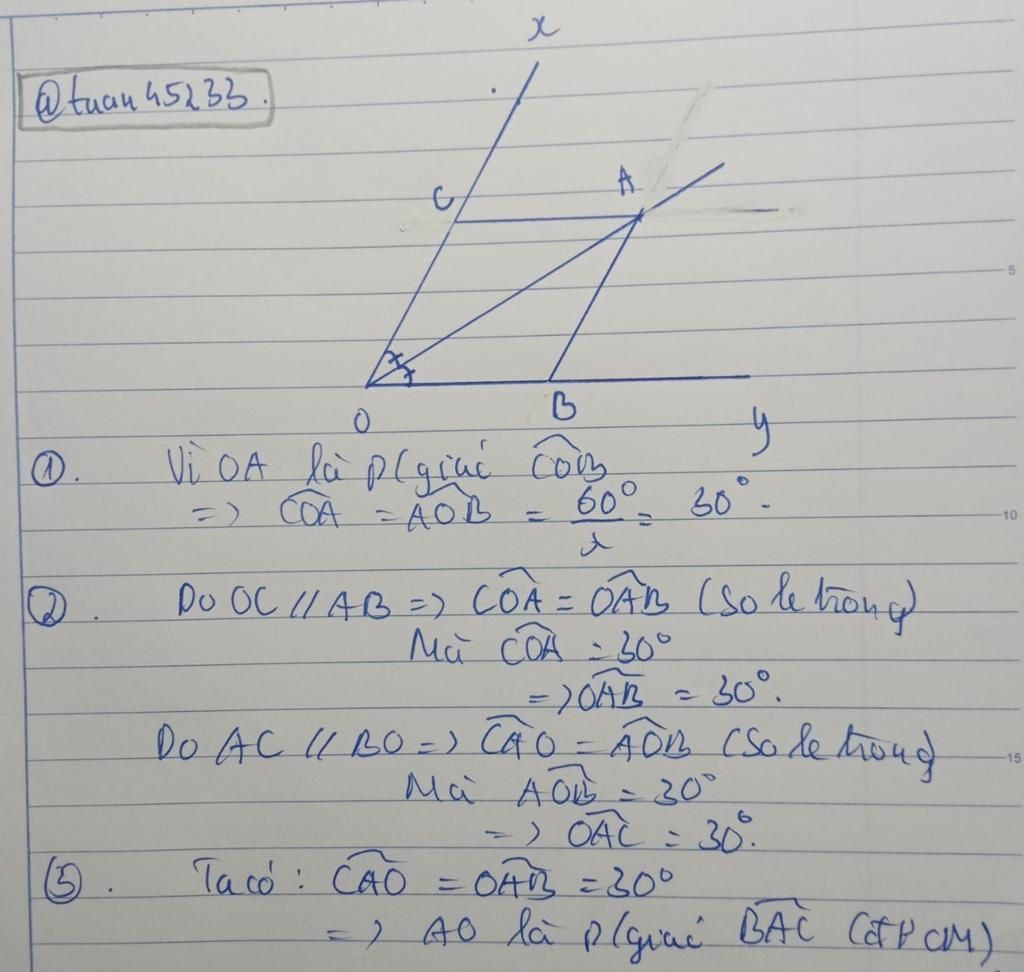 x
@tuan45233.
C
A
5
O
B
y
①. Vì OA là p/giác $\widehat{COB}$
=> $\widehat{COA}$ = $\widehat{AOB}$ = $\frac{60°}{2}$ = 30°.
10
②. Do OC // AB => $\widehat{COA}$ = $\widehat{OAB}$ (So le trong)
Mà $\widehat{COA}$ = 30°
=> $\widehat{OAB}$ = 30°.
Do AC // BO => $\widehat{CAO}$ = $\widehat{AOB}$ (So le trong)
15
Mà $\widehat{AOB}$ = 30°
=> $\widehat{OAC}$ = 30°.
③. Ta có: $\widehat{CAO}$ = $\widehat{OAB}$ = 30°
=> AO là p/giác $\widehat{BAC}$ (đPCM)